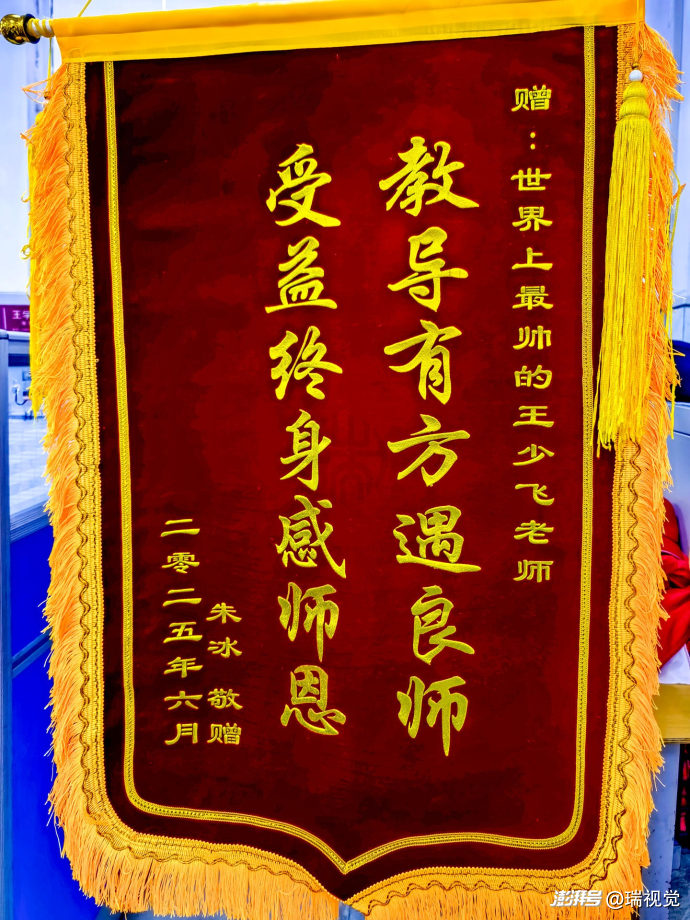 赠：世界上最帅的王少飞老师
教导有方遇良师
受益终身感师恩
朱冰 敬赠
二零二五年六月
澎湃号@瑞视觉